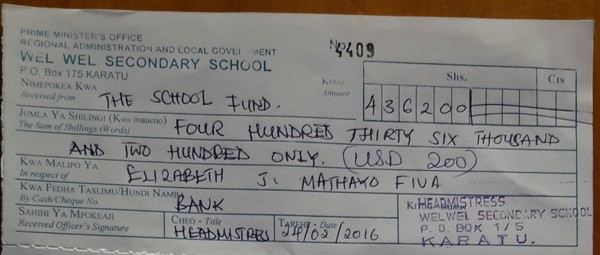 PRIME MINISTER'S OFFICE
REGIONAL ADMINISTRATION AND LOCAL GOVERNMENT
WEL WEL SECONDARY SCHOOL
P.O. Box 175 KARATU
No 4409
NIMEPOKEA KWA
Received from THE SCHOOL FUND.
KIASI
Amount
Shs. Cts
4 3 6 2 0 0
JUMLA YA SHILINGI (Kwa maneno)
The Sum of Shillings (Words) FOUR HUNDRED THIRTY SIX THOUSAND
AND TWO HUNDRED ONLY. (USD 200)
KWA MALIPO YA
In respect of ELIZABETH J. MATHAYO FIVA
KWA FEDHA TASLIMU/HUNDI NAMBA
By Cash/Cheque No. BANK
SAHIHI YA MPOKEAJI
Received Officer's Signature
CHEO - Title
HEADMISTRES
TAREHE - Date
24/02/2016
HEADMISTRESS
WELWEL SECONDARY SCHOOL
P. O. BOX 175
KARATU.